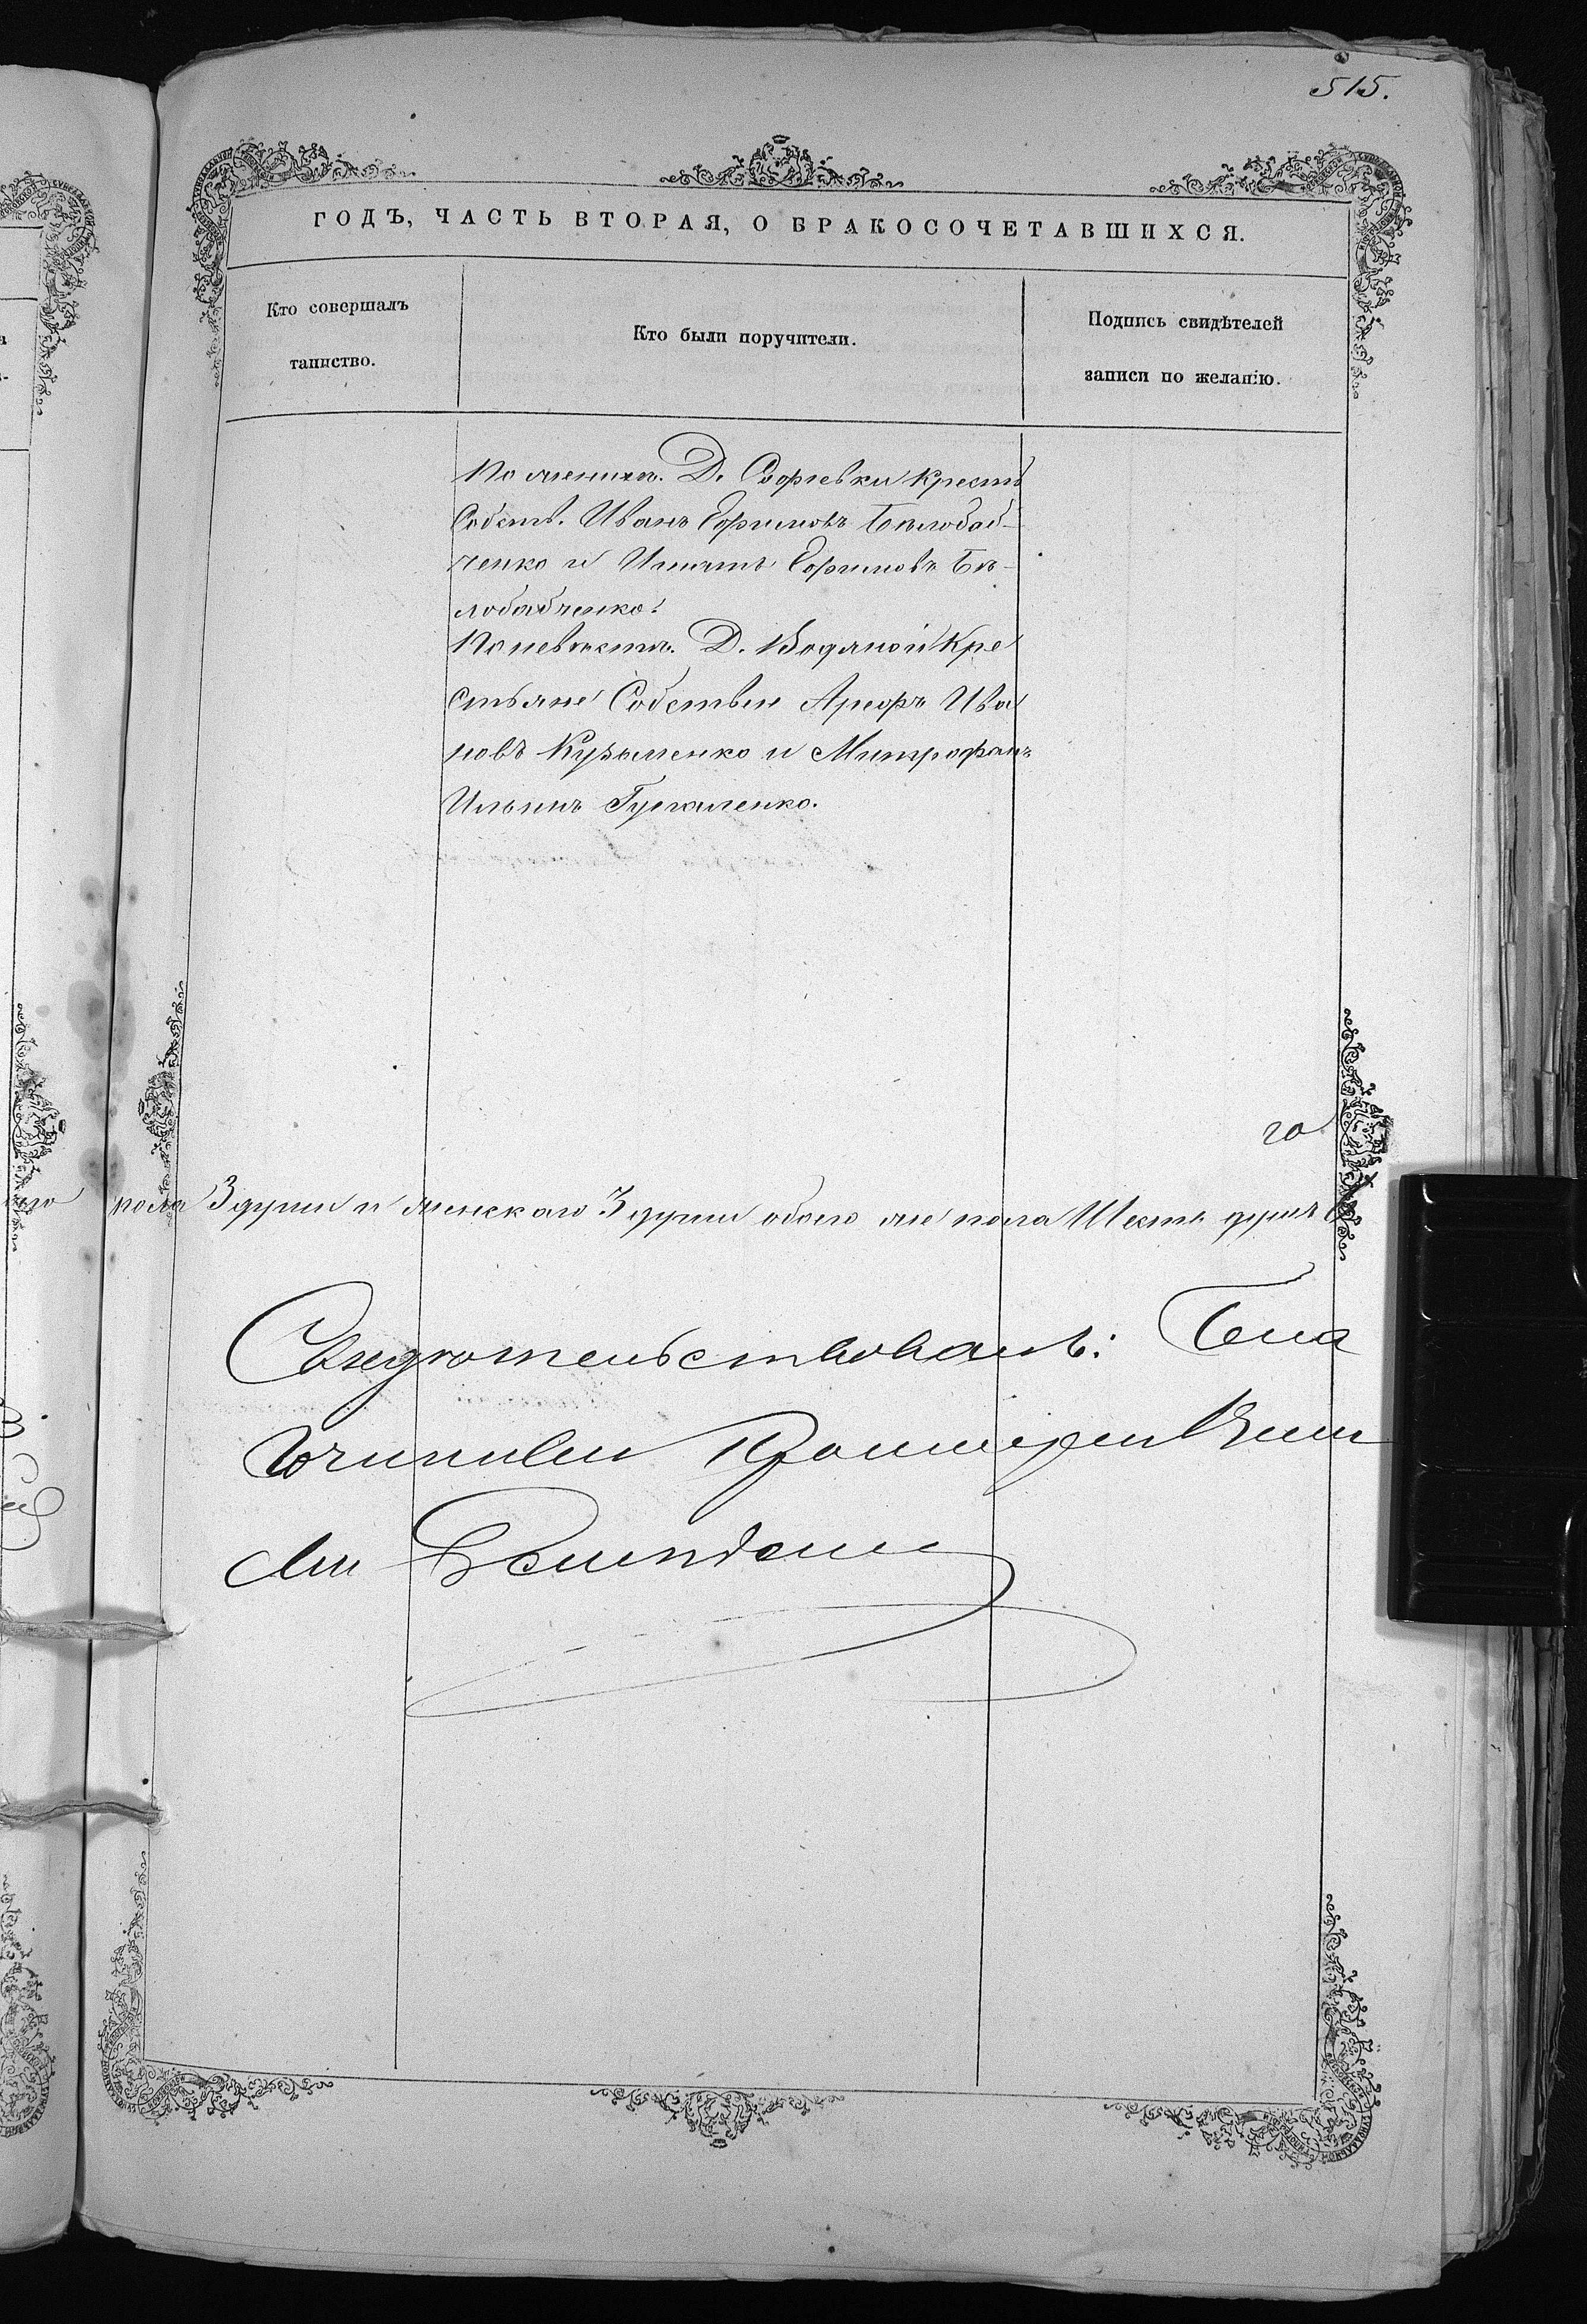 515.
ГОДЪ, ЧАСТЬ ВТОРАЯ, О БРАКОСОЧЕТАВШИХСЯ.
Кто совершалъ
таинство.
Кто были поручители.
Подпись свидѣтелей
записи по желанію.
По жених. Д. Софіевки Крестъ
Собств. Иванъ Ефимовъ Бѣлобаб-
ченко и Игнатъ Ефимовъ Бѣ-
лобабченко:
По невѣстѣ. Д. Водяной Кре
стьяне Собствен Арефъ Ива
новъ Кузьменко и Митрофанъ
Ильинъ
го
пола 3 души и женскаго 3 души обоего же пола Шесть душъ
Свидѣтельствовалъ: Бла
гочинный